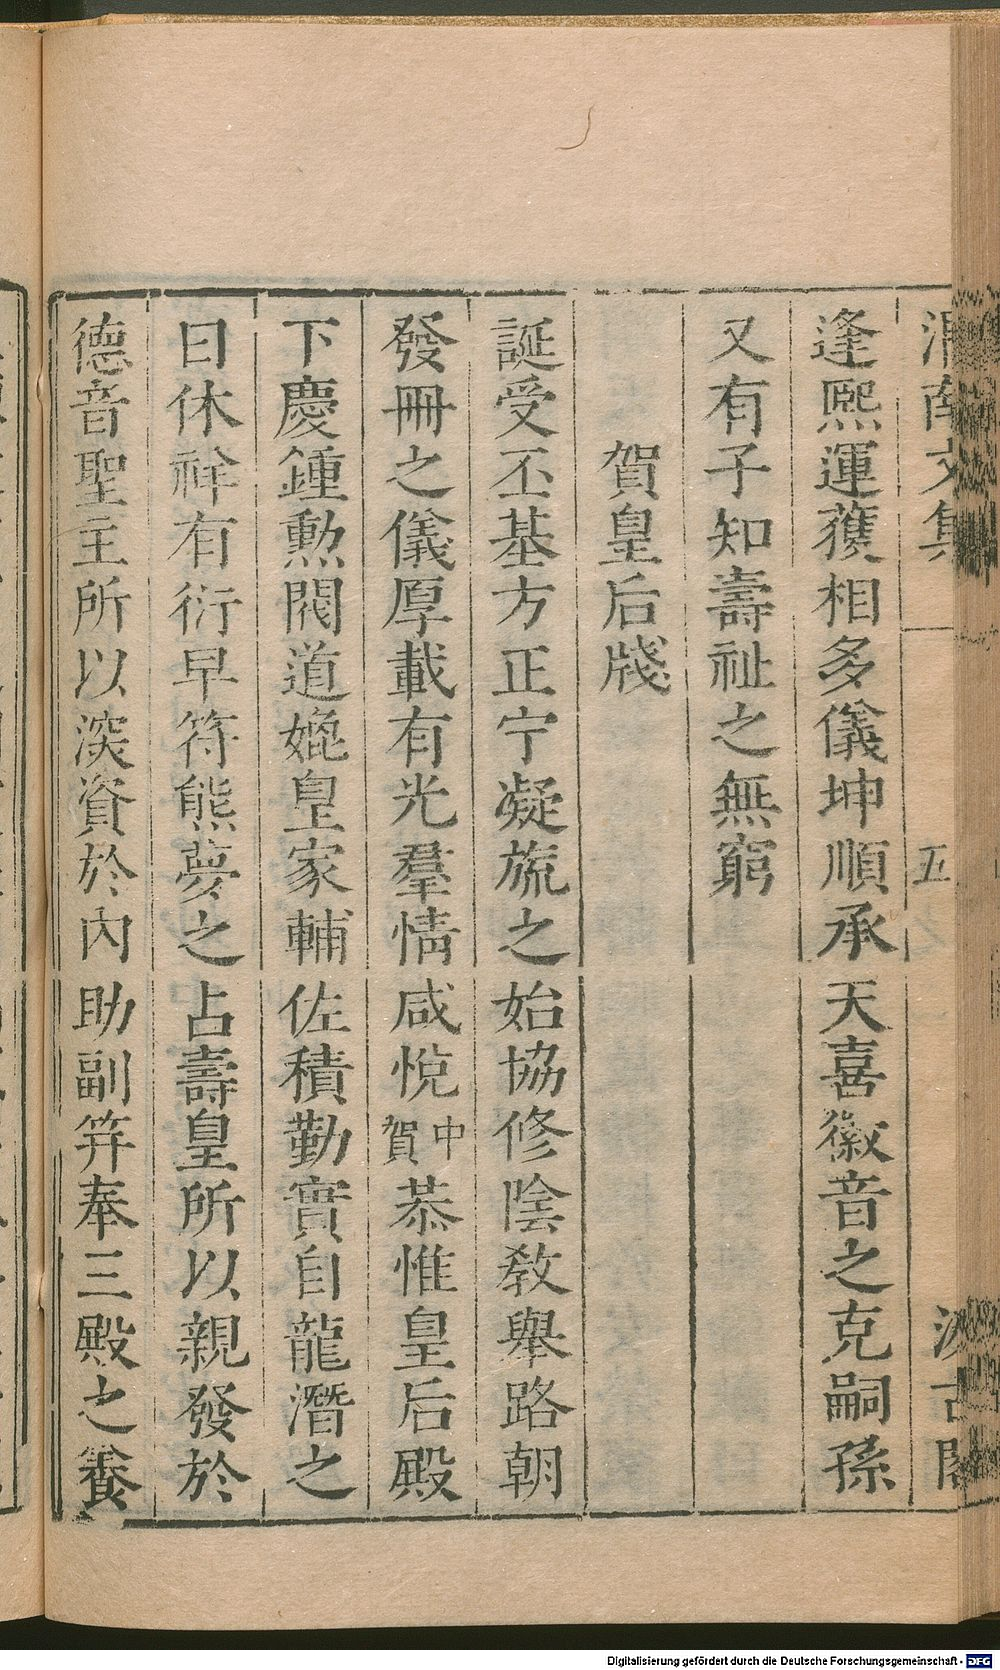 渭南文集 五 汲古閣
逢熈運獲相多儀坤順承天喜徽音之克嗣孫
又有子知壽祉之無窮
賀皇后牋
誕受丕基方正宁凝旒之始協修陰敎舉路朝
發冊之儀厚載有光羣情咸悅中賀恭惟皇后殿
下慶鍾勲閥道媲皇家輔佐積勤實自龍潛之
日休祥有衍早符熊夢之占壽皇所以親發於
德音聖主所以深資於內助副笄奉三殿之養
Digitalisierung gefördert durch die Deutsche Forschungsgemeinschaft - DFG